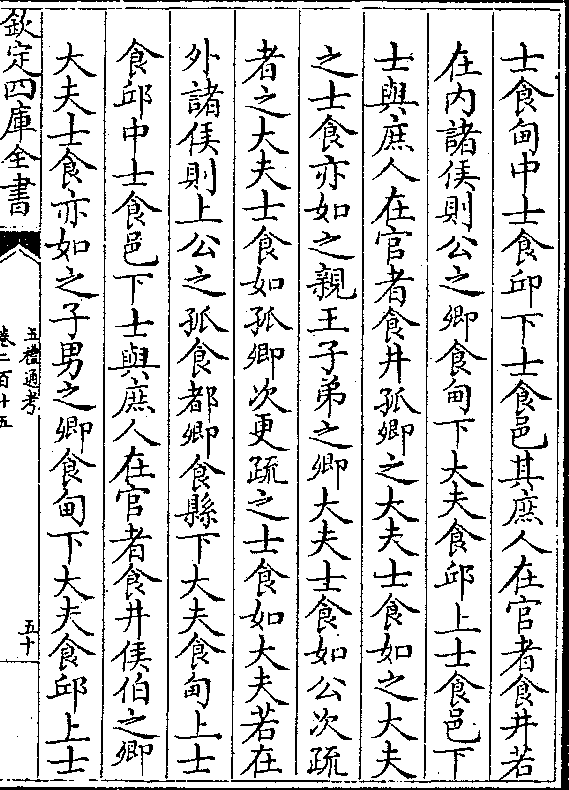 士食甸中士食邱下士食邑其庶人在官者食井若
在内諸侯則公之卿食甸下大夫食邱上士食邑下
士與庶人在官者食井孤卿之大夫士食如之大夫
之士食亦如之親王子弟之卿大夫士食如公次疏
者之大夫士食如孤卿次更疏之士食如大夫若在
外諸侯則上公之孤食都卿食縣下大夫食甸上士
食邱中士食邑下士與庶人在官者食井侯伯之卿
大夫士食亦如之子男之卿食甸下大夫食邱上士
欽定四庫全書
五禮通考
卷二百十五
五十